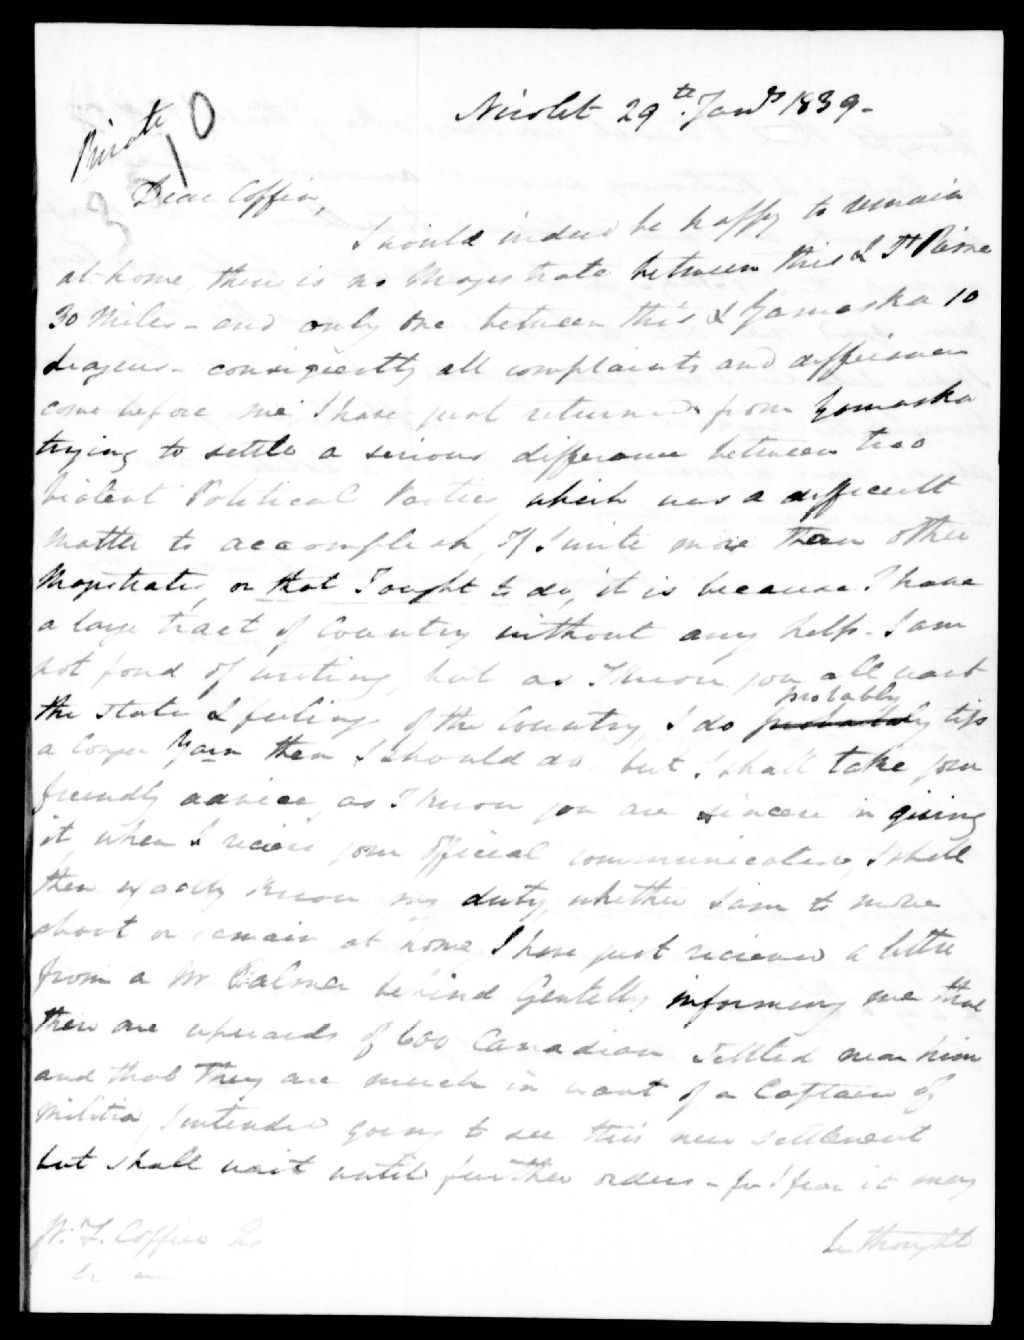 Nicolet 29th Jany 1839-
Private
10
3
Dear Coffin,
I would indeed be happy to remain
at home, there is no Magestrate between this & St Pierre
30 Miles - and only one between this & Yamaska 10
Leagues - consiquently all complaints and differences
come before me, I have just returned from Yamaska
trying to settle a serious difference between two
violent Political Parties which was a difficult
matter to accomplish, If I write more than other
Magistrates, or that I ought to do, it is because I have
a large tract of Country without any help - I am
not fond of writing, but as I know you all want
the state & feelings of the Country I do probably tip
a longer Yarn then I should do but I shall take your
friendly advice, as I know you are sincere in giving
it when I recieve your official communication, I shall
then exactly know my duty, whether I am to move
about or remain at home I have just recieved a letter
from a Mr Palmer behind Gentelly informing me that
there are upwards of 600 Canadian settled near him
and that they are much in want of a Captain of
Militia, I intended going to see this new settlement
but shall wait until further orders - for I fear it may
be thought
W. F. Coffin Esq